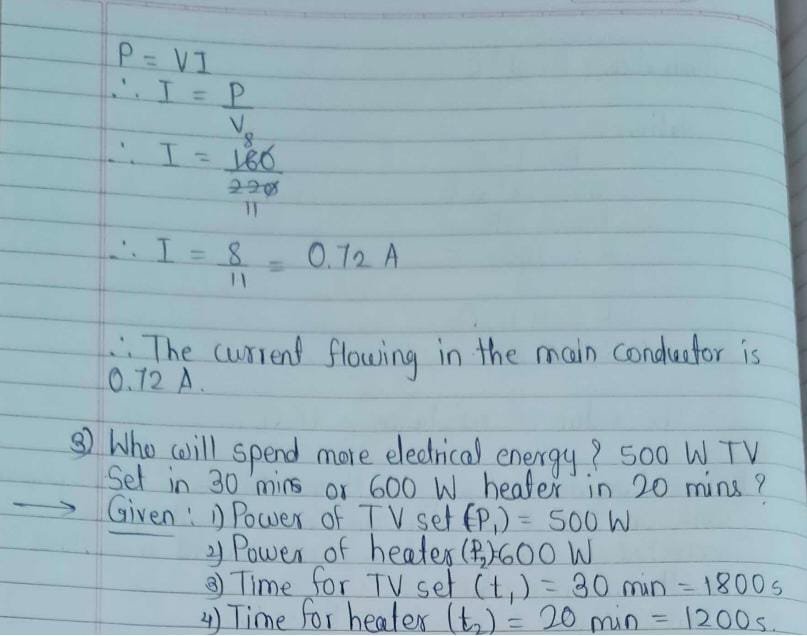 P = VI
∴ I = P
V
8
∴ I = 160
220
11
∴ I = 8 = 0.72 A
11
∴ The current flowing in the main conductor is
0.72 A.
3) Who will spend more electrical energy? 500 W TV
Set in 30 mins or 600 W heater in 20 mins?
→ Given: 1) Power of TV set (P₁) = 500 W
2) Power of heater (P₂)=600 W
3) Time for TV set (t₁) = 30 min = 1800s
4) Time for heater (t₂) = 20 min = 1200s.